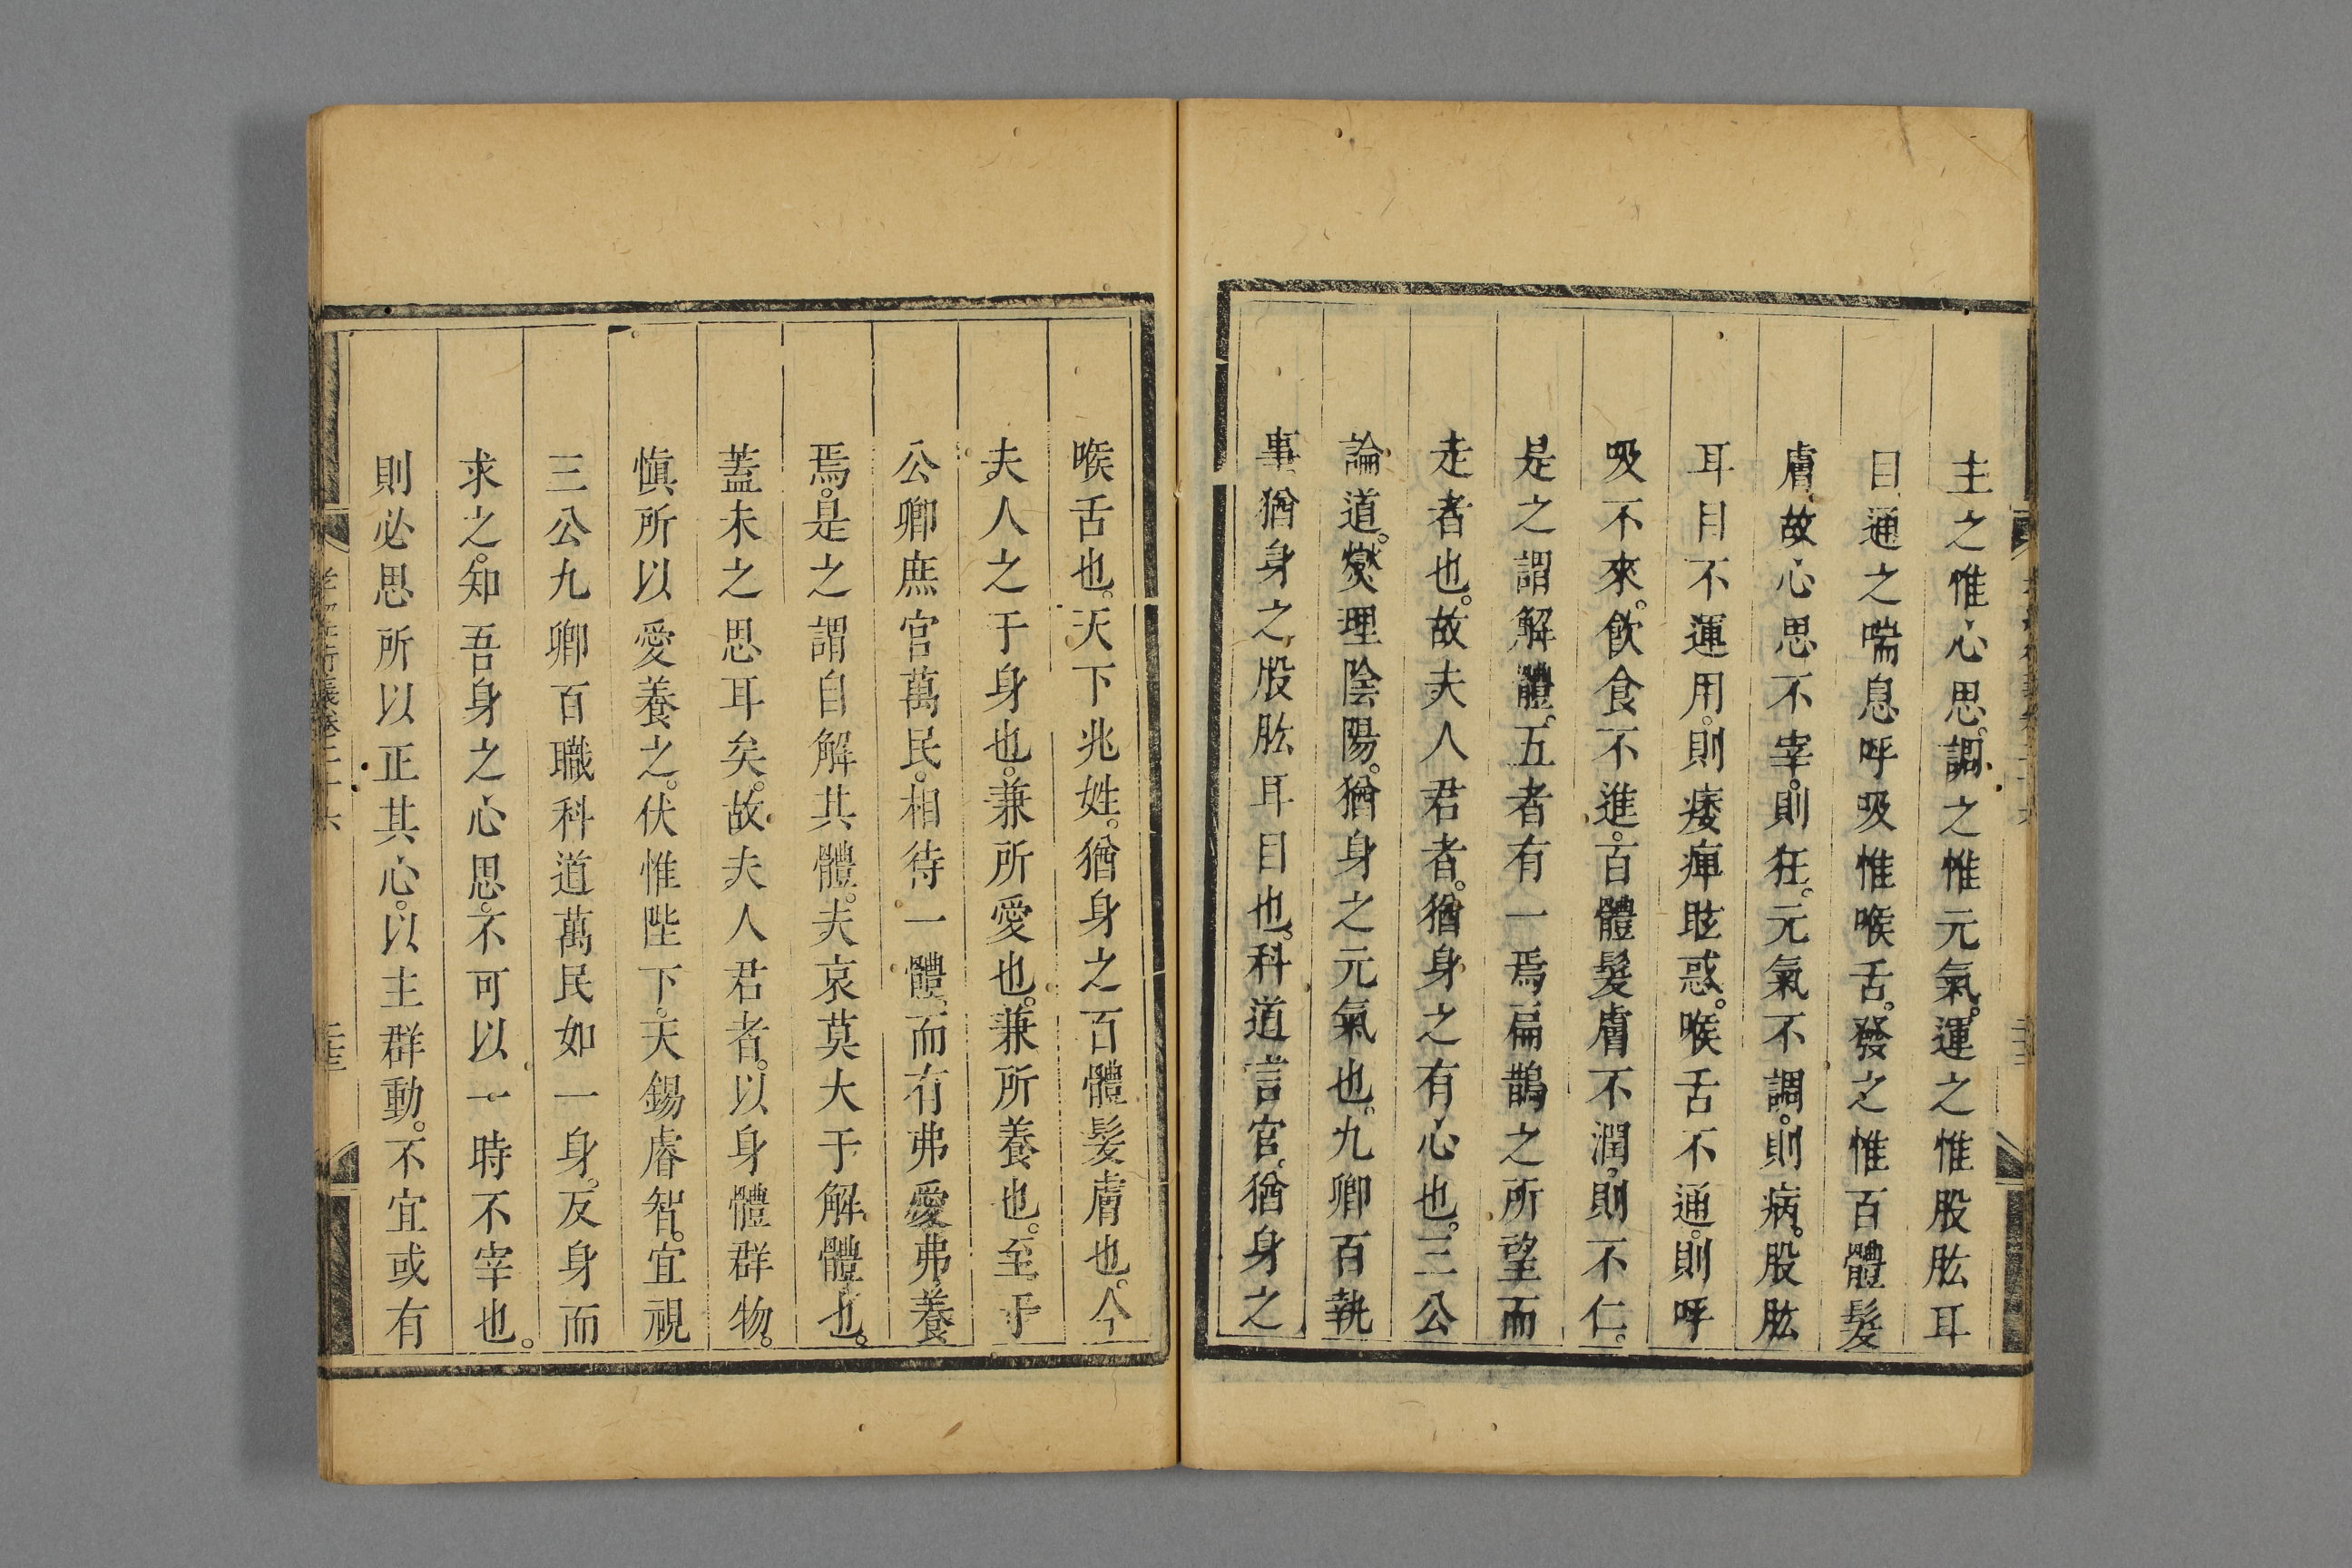 主之惟心思。調之惟元氣。運之惟股肱耳
目。通之喘息呼吸惟喉舌。發之惟百體髮
膚。故心思不宰。則狂。元氣不調。則病。股肱
耳目不運用。則痿痺眩惑。喉舌不通。則呼
吸不來。飲食不進。百體髮膚不潤。則不仁。
是之謂解體。五者有一焉扁鵲之所望而
走者也。故夫人君者。猶身之有心也。三公
論道。爕理陰陽。猶身之元氣也。九卿百執
事猶身之股肱耳目也。科道言官。猶身之
喉舌也。天下兆姓。猶身之百體髮膚也。今
夫人之于身也。兼所愛也。兼所養也。至于
公卿庶官萬民。相待一體。而有弗愛弗養
焉。是之謂自解其體。夫哀莫大于解體也。
蓋未之思耳矣。故夫人君者。以身體群物。
愼所以愛養之。伏惟陛下。天錫睿智。宜視
三公九卿百職科道萬民如一身。反身而
求之。知吾身之心思。不可以一時不宰也。
則必思所以正其心。以主群動。不宜或有